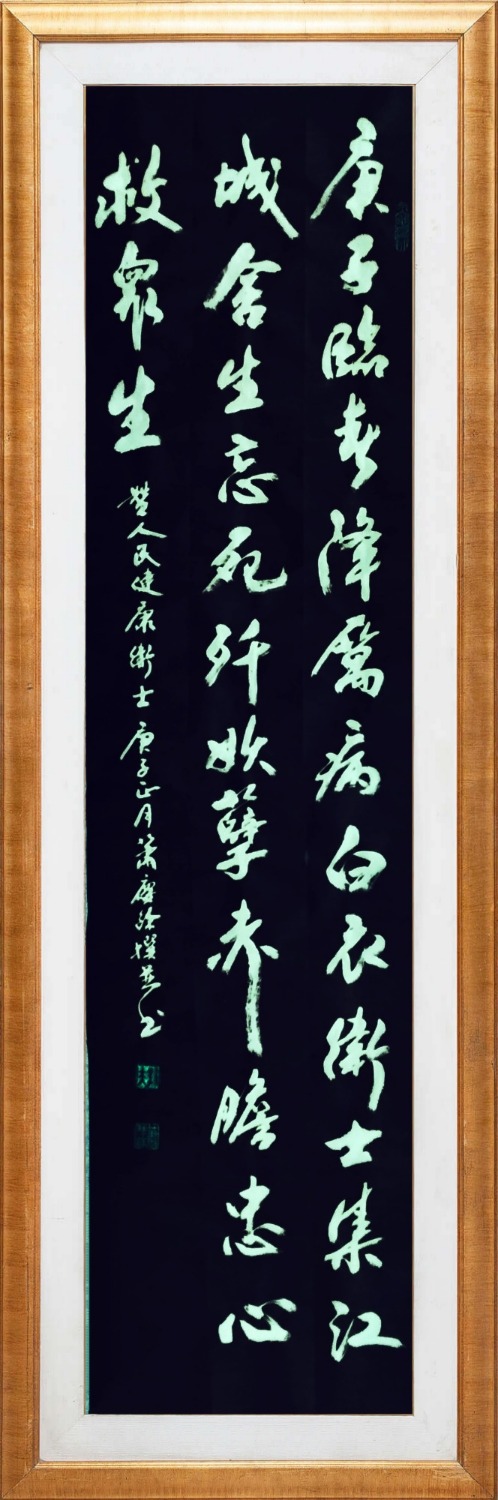 庚子臨春降厲病白衣衛士集江
城舍生忘死殲妖孽赤膽忠心
救眾生
贊人民健康衛士庚子正月蕭 撰並书